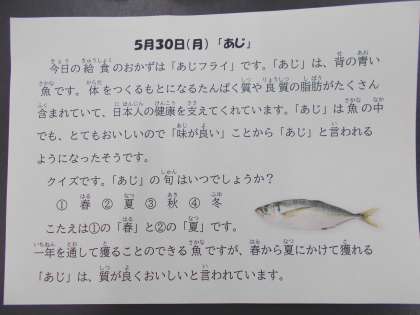 5月30日(月)「あじ」
今日の給食のおかずは「あじフライ」です。「あじ」は、背の青い
魚です。体をつくるもとになるたんぱく質や良質の脂肪がたくさん
含まれていて、日本人の健康を支えてくれています。「あじ」は魚の中
でも、とてもおいしいので「味が良い」ことから「あじ」と言われる
ようになったそうです。
クイズです。「あじ」の旬はいつでしょうか?
① 春 ② 夏 ③ 秋 ④ 冬
こたえは①の「春」と②の「夏」です。
一年を通して獲ることのできる魚ですが、春から夏にかけて獲れる
「あじ」は、質が良くおいしいと言われています。